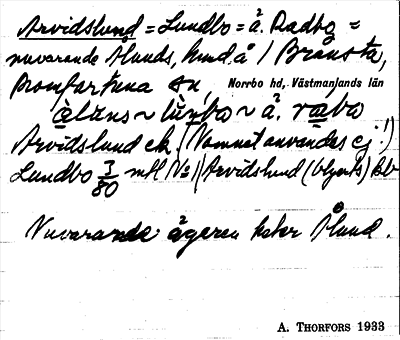 Arvidslund = Lundbo = å. Radbo =
nuvarande Ålunds, hmd. å / Brånsta,
Romfartuna sn, Norrbo hd, Västmanlands län
àluns ~ lùnbo ~ å. rabo
Arvidslund ek. (Namnet användes ej!)
Lundbo 3/80 mtl No 1 (Arvidslund (blyerts) kb
Nuvarande ägaren heter Ålund.
A. THORFORS 1933